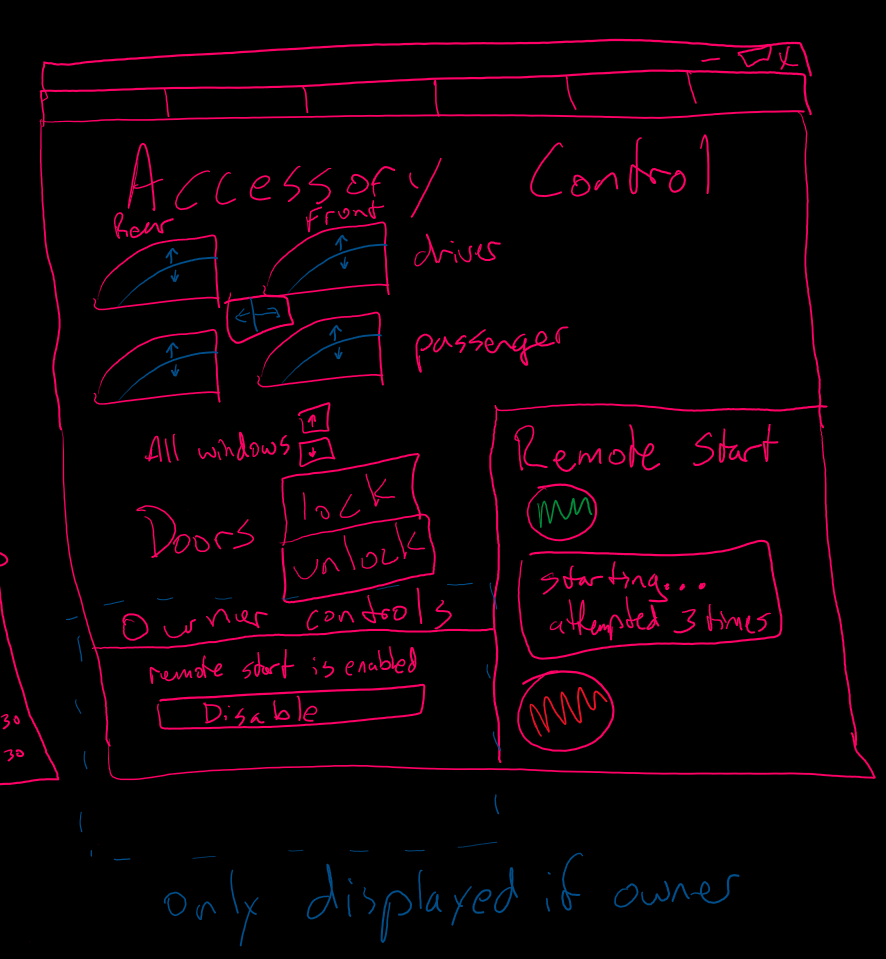 Accessory Control
Rear Front
driver
passenger
All windows
Doors
lock
unlock
Owner controls
remote start is enabled
Disable
Remote start
starting...
attempted 3 times
30
30
only displayed if owner